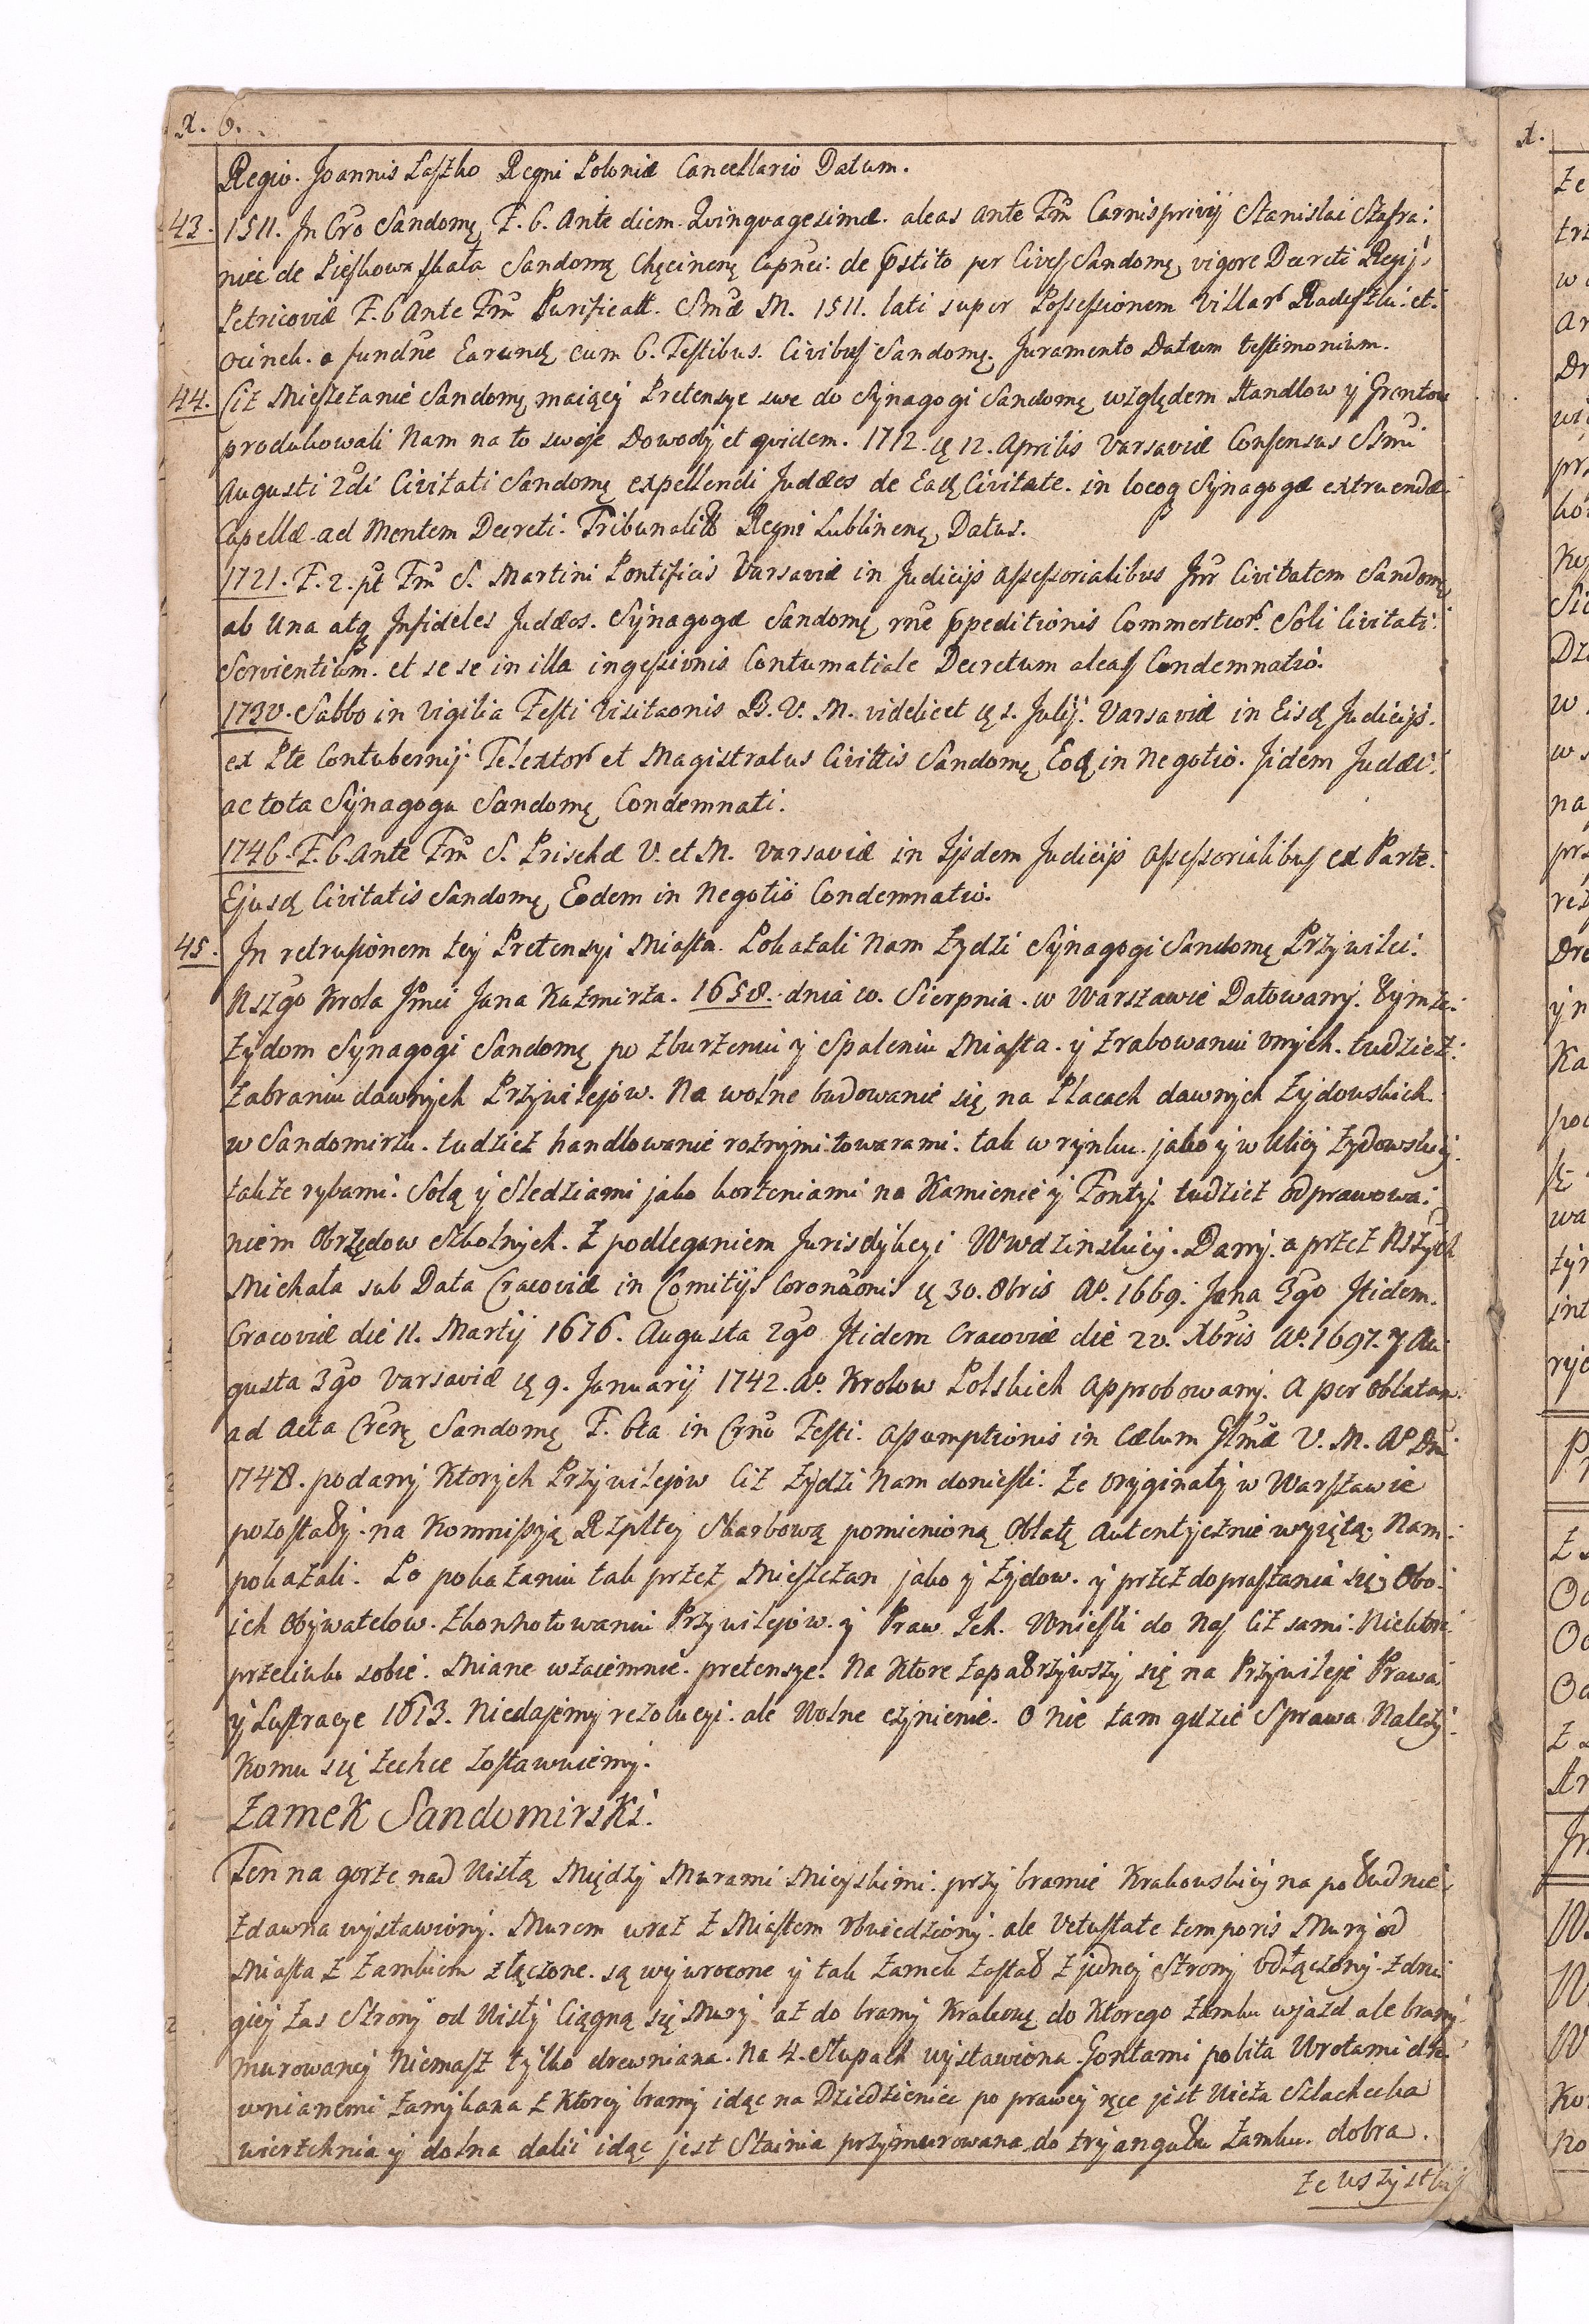 A. 6.
Regio. Joannis Łaszko Regni Poloniæ Cancellario Datum.
43. 1511. In Cro Sandomę F. 6. Ante diem Qvinqvagesimæ. aleas ante Fm Carnisprivij Stanislai Szafra:
niec de Pieskowa skała Sandomę Chęcinenę Capnei: de pstito per Cives Sandomę, vigore Decreti Regij
Petricoviæ F. 6 Ante Fm Purificatt. Smæ M. 1511. lati super Possessionem Villar
ocinek. a fundne Earundę cum 6. Testibus. Civibus Sandomę. Juramento Datum testimonium.
44. Ciż Mieszczanie Sandomę maiący Pretensye swe do Synagogi Sandomę względem Handlow y Grontow
produkowali Nam na to swoje Dowody et qvidem. 1712. ę 12. Aprilis Varsaviæ Consensus Smi
Augusti 2di Civitati Sandomę expellendi Judæos de Eadę Civitate. in locoq Synagogæ extruendæ
Capellæ ad Mentem Decreti. Tribunalis Regni Lublinenę, Datus.
1721. F. 2. pt Fm S. Martini Pontificis Varsaviæ in Judicijs Assessorialibus Inr Civitatem Sandomę
ab Una atq Infideles Judæos. Synagogæ Sandomę rne ppeditionis Commertior. Soli Civitati
Servientium. et se se in illa ingessionis Contumatiale Decretum aleas Condemnatio.
1730. Sabbo in Vigilia Festi Visitaonis B. V. M. videlicet ę 1. Julij. Varsaviæ in Eisdę Judicijs.
ex Pte Contubernij Telextor et Magistratus Civittis Sandomę, Eodę in Negotio. Iidem Judæi
ac tota Synagoga Sandomę Condemnati.
1746. F. 6. Ante Fm S. Prischæ V. et M. Varsaviæ in Ijsdem Judicijs Assessorialibus ex Parte.
Ejusdę Civitatis Sandomę, Eodem in Negotio Condemnatio.
45. In retrusionem tey Pretensyi Miasta. Pokazali Nam Żydzi Synagogi Sandomę Przywilei.
Nszgo Krola Jmci Jana Kazmirza. 1658. dnia 10. Sierpnia. w Warszawie Datowany. Tymże
Żydom Synagogi Sandomę po zburzeniu y Spaleniu Miasta. y zrabowaniu onych. tudzież
zabraniu dawnych Przywilejow. Na wolne budowanie się na Placach dawnych Żydowskich.
w Sandomirzu. tudzież handlowanie rożnymi towarami. tak w rynku. jako y w Ulicy Żydowskiey
także rybami. Solą y Sledziami jako korzeniami na Kamienie y Fonty. tudzież odprawowa:
niem Obrzędow Szkolnych. Z podleganiem Jurisdykcyi Wwdzinskiey. Dany. a przez Nszych
Michała sub Data Cracoviæ in Comitijs Coronaonis ę 30. 8bris Ao. 1669. Jana 3go Itidem.
Cracoviæ die 11. Martij 1676. Augusta 2go Itidem Cracoviæ die 20. Xbris Ao. 1697. y Au
gusta 3go Varsaviæ ę 9. Januarij 1742. Ao. Krolow Polskich Approbowany. A per Oblatam
ad Acta Crenę Sandomę F. 6ta in Crno Festi. Assumptionis in Cælum Glmæ V. M. Ao Dni
1748. podany Ktorych Przywilejow Ciż Żydzi Nam doniesli. Że oryginały w Warszawie
pozostały. na Kommissyją Rzpltey Skarbową pomienioną Oblatę Autentycznie wyiętą, Nam
pokazali. Po pokazaniu tak przez Mieszczan jako y Żydow. y przez dopraszania się Obo:
ich Obywatelow. zkonnotowaniu Przywilejow. y Praw Ich. Wniesli do Nas Ciż sami. Niektore
przeciwko sobie. Miane wzaiemnie. pretensye. Na Ktore zapatrzywszy się na Przywileje Prawa
y Lustracye 1613. Niedajemy rezolucyi. ale Wolne czynienie. O nie tam gdzie Sprawa Należy
Komu się zechce zostawuiemy.
Zamek Sandomirski.
Ten na gorze nad Wisłą Między Murami Mieyskimi. przy bramie Krakowskiey na południe
zdawna wystawiony. Murem wraz z Miastem obwiedziony. ale Vetustate temporis Mury od
Miasta z Zamkiem złączone. są wywrocone y tak Zamek został z jedney Strony odłączony. z dru
giey zas Strony od Wisły Ciągną się Mury aż do bramy Krakowę, do Ktorego Zamku wjazd ale bramy
murowaney Niemasz tylko drewniana. Na 4. Słupach wystawiona. Gontami pobita Wrotami dre
wnianemi zamykana z Ktorey bramy idąc na Dziedzieniec po prawey ręce jest Wieża Szlachecka
wierzchnia y dolna daliey idąc jest Stainia przymurowana do tryangułu Zamku. dobra.
ze wszystkiey